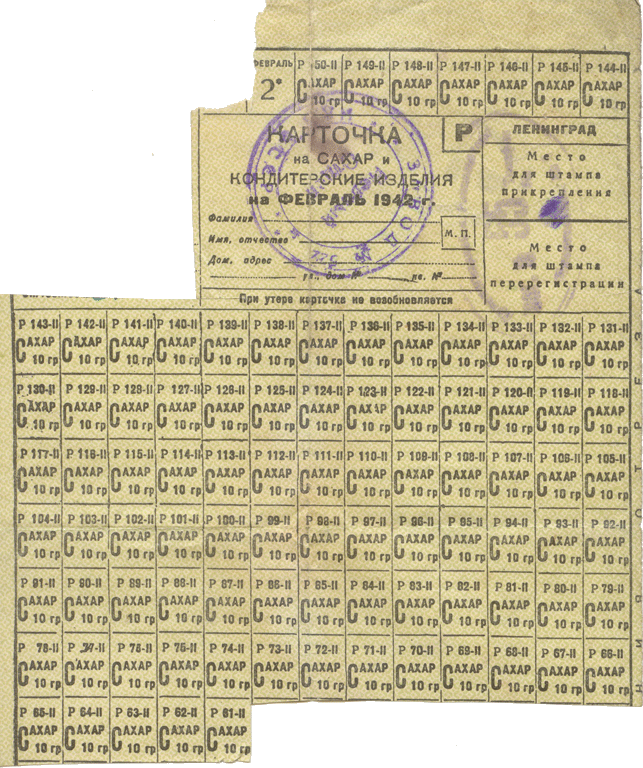 ФЕВРАЛЬ Р 50-II Р 149-II Р 148-II Р 147-II Р 146-II Р 145-II Р 144-II
2° САХАР САХАР САХАР САХАР САХАР САХАР САХАР
10 гр 10 гр 10 гр 10 гр 10 гр 10 гр 10 гр
КАРТОЧКА
на САХАР и
КОНДИТЕРСКИЕ ИЗДЕЛИЯ
на ФЕВРАЛЬ 1942 г.
Р
Фамилия
Имя, отчество
Дом. адрес
ул., дом № кв. №
М. П.
ЗАВОД
ЛЕНИНГРАД
Место
для штампа
прикрепления
Место
для штампа
перерегистрации
При утере карточка не возобновляется
Р 143-II Р 142-II Р 141-II Р 140-II Р 139-II Р 138-II Р 137-II Р 136-II Р 135-II Р 134-II Р 133-II Р 132-II Р 131-II
САХАР САХАР САХАР САХАР САХАР САХАР САХАР САХАР САХАР САХАР САХАР САХАР САХАР
10 гр 10 гр 10 гр 10 гр 10 гр 10 гр 10 гр 10 гр 10 гр 10 гр 10 гр 10 гр 10 гр
Р 130-II Р 129-II Р 128-II Р 127-II Р 126-II Р 125-II Р 124-II Р 123-II Р 122-II Р 121-II Р 120-II Р 119-II Р 118-II
САХАР САХАР САХАР САХАР САХАР САХАР САХАР САХАР САХАР САХАР САХАР САХАР САХАР
10 гр 10 гр 10 гр 10 гр 10 гр 10 гр 10 гр 10 гр 10 гр 10 гр 10 гр 10 гр 10 гр
Р 117-II Р 116-II Р 115-II Р 114-II Р 113-II Р 112-II Р 111-II Р 110-II Р 109-II Р 108-II Р 107-II Р 106-II Р 105-II
САХАР САХАР САХАР САХАР САХАР САХАР САХАР САХАР САХАР САХАР САХАР САХАР САХАР
10 гр 10 гр 10 гр 10 гр 10 гр 10 гр 10 гр 10 гр 10 гр 10 гр 10 гр 10 гр 10 гр
Р 104-II Р 103-II Р 102-II Р 101-II Р 100-II Р 99-II Р 98-II Р 97-II Р 96-II Р 95-II Р 94-II Р 93-II Р 92-II
САХАР САХАР САХАР САХАР САХАР САХАР САХАР САХАР САХАР САХАР САХАР САХАР САХАР
10 гр 10 гр 10 гр 10 гр 10 гр 10 гр 10 гр 10 гр 10 гр 10 гр 10 гр 10 гр 10 гр
Р 91-II Р 90-II Р 89-II Р 88-II Р 87-II Р 86-II Р 85-II Р 84-II Р 83-II Р 82-II Р 81-II Р 80-II Р 79-II
САХАР САХАР САХАР САХАР САХАР САХАР САХАР САХАР САХАР САХАР САХАР САХАР САХАР
10 гр 10 гр 10 гр 10 гр 10 гр 10 гр 10 гр 10 гр 10 гр 10 гр 10 гр 10 гр 10 гр
Р 78-II Р 77-II Р 76-II Р 75-II Р 74-II Р 73-II Р 72-II Р 71-II Р 70-II Р 69-II Р 68-II Р 67-II Р 66-II
САХАР САХАР САХАР САХАР САХАР САХАР САХАР САХАР САХАР САХАР САХАР САХАР САХАР
10 гр 10 гр 10 гр 10 гр 10 гр 10 гр 10 гр 10 гр 10 гр 10 гр 10 гр 10 гр 10 гр
Р 65-II Р 64-II Р 63-II Р 62-II Р 61-II
САХАР САХАР САХАР САХАР САХАР
10 гр 10 гр 10 гр 10 гр 10 гр